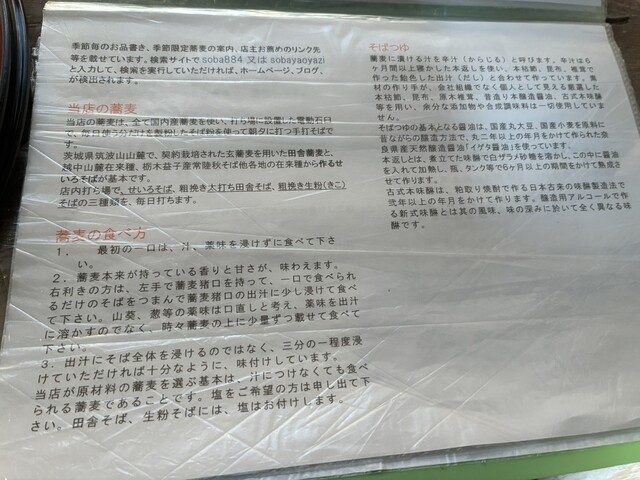 季節毎のお品書き、季節限定蕎麦の案内、店主お薦めのリンク先
等を載せています。検索サイトでsoba884 又は sobayaoyazi
と入力して、検索を実行していただければ、ホームページ、ブログ、
が検出されます。
当店の蕎麦
当店の蕎麦は、全て国内産蕎麦を使い、打ち場に設置した電動石臼
で、毎日使う分だけを製粉したそば粉を使って朝夕に打つ手打そばで
す。
茨城県筑波山山麓で、契約栽培された玄蕎麦を用いた田舎蕎麦と、
越中山麓在来種、栃木益子産常陸秋そば他各地の在来種から作るせ
いろそばが基本です。
店内打ち場で、せいろそば、粗挽き太打ち田舎そば、粗挽き生粉(きこ)
そばの三種類を、毎日打ちます。
蕎麦の食べ方
1. 最初の一口は、汁、薬味を浸けずに食べて下さ
い。
2. 蕎麦本来が持っている香りと甘さが、味わえます。
右利きの方は、左手で蕎麦猪口を持って、一口で食べられ
るだけのそばをつまんで蕎麦猪口の出汁に少し浸けて食べ
て下さい。山葵、葱等の薬味は口直しと考え、薬味を出汁
に溶かすのでなく、時々蕎麦の上に少量ずつ載せて食べて
下さい。
3. 出汁にそば全体を浸けるのではなく、三分の一程度浸
けていただければ十分なように、味付けしています。
当店が原材料の蕎麦を選ぶ基本は、汁につけなくても食べ
られる蕎麦であることです。塩をご希望の方は申し出て下
さい。田舎そば、生粉そばには、塩はお付けします。
そばつゆ
蕎麦に漬ける汁を辛汁(からじる)と呼びます。辛汁は6
ヶ月間以上寝かした本返しを使い、本枯節、昆布、椎茸で
作った飴色した出汁(だし)と合わせて作っています。素
材の作り手が、会社組織でなく個人として見える厳選した
本枯節、昆布、原木椎茸、昔造り本醸造醤油、古式本味醂
等を用い、余分な添加物や合成調味料は一切使用していま
せん。
そばつゆの基本となる醤油は、国産丸大豆、国産小麦を原料に
昔ながらの醸造方法で、丸二年以上の年月をかけて作られた奈
良県産天然醸造醤油「イゲタ醤油」を使っています。
本返しとは、煮立てた味醂で白ザラメ砂糖を溶かし、この中に醤油
を入れて加熱し、瓶、タンク等で6ヶ月以上の期間をかけて熟成さ
せて作ります。
古式本味醂は、粕取り焼酎で作る日本古来の味醂製造法で
弐年以上の年月をかけて作ります。醸造用アルコールで作
る新式味醂とは其の風味、味の深みに於いて全く異なる味
醂です。